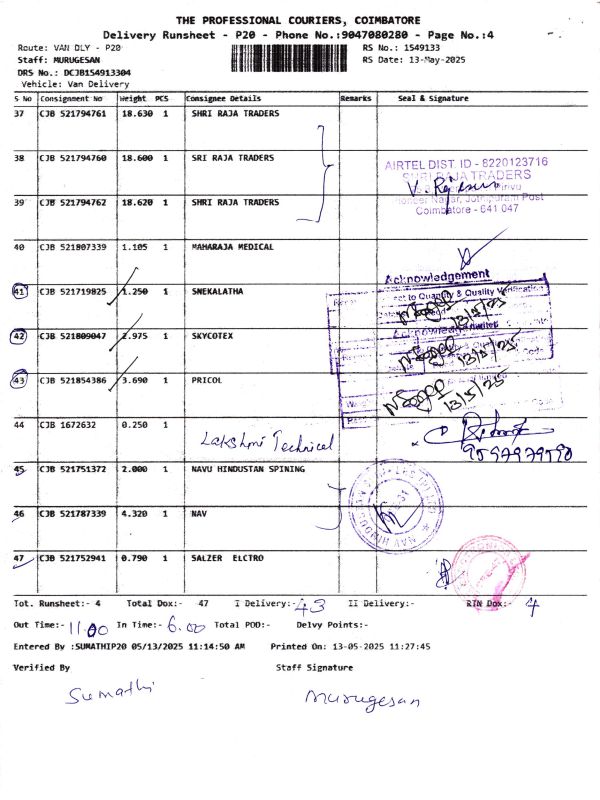 THE PROFESSIONAL COURIERS, COIMBATORE
Delivery Runsheet - P20 - Phone No.:9047080280 - Page No.:4
Route: VAN DLY - P20 RS No.: 1549133
Staff: MURUGESAN RS Date: 13-May-2025
DRS No.: DCJB154913304
Vehicle: Van Delivery
S No Consignment No Weight PCS Consignee Details Remarks Seal & Signature
37 CJB 521794761 18.630 1 SHRI RAJA TRADERS
38 CJB 521794760 18.600 1 SRI RAJA TRADERS
AIRTEL DIST. ID - 8220123716
SHRI RAJA TRADERS
39 CJB 521794762 18.620 1 SHRI RAJA TRADERS
Nagar, Jothipuram Post
Coimbatore - 641 047
40 CJB 521807339 1.105 1 MAHARAJA MEDICAL
Acknowledgement
41 CJB 521719825 1.250 1 SNEKALATHA
to Quantity & Quality Verification
13/5/25
42 CJB 521809047 2.975 1 SKYCOTEX
13/5/25
43 CJB 521854386 3.690 1 PRICOL
13/5/25
44 CJB 1672632 0.250 1
Lakshmi Technical
45 CJB 521751372 2.000 1 NAVU HINDUSTAN SPINING
46 CJB 521787339 4.320 1 NAV
47 CJB 521752941 0.790 1 SALZER ELCTRO
Tot. Runsheet:- 4 Total Dox:- 47 I Delivery:- 43 II Delivery:- RTN Dox:- 4
Out Time:- 11.00 In Time:- 6.00 Total POD:- Delvy Points:-
Entered By :SUMATHIP20 05/13/2025 11:14:50 AM Printed On: 13-05-2025 11:27:45
Verified By Staff Signature
Sumathi Murugesan